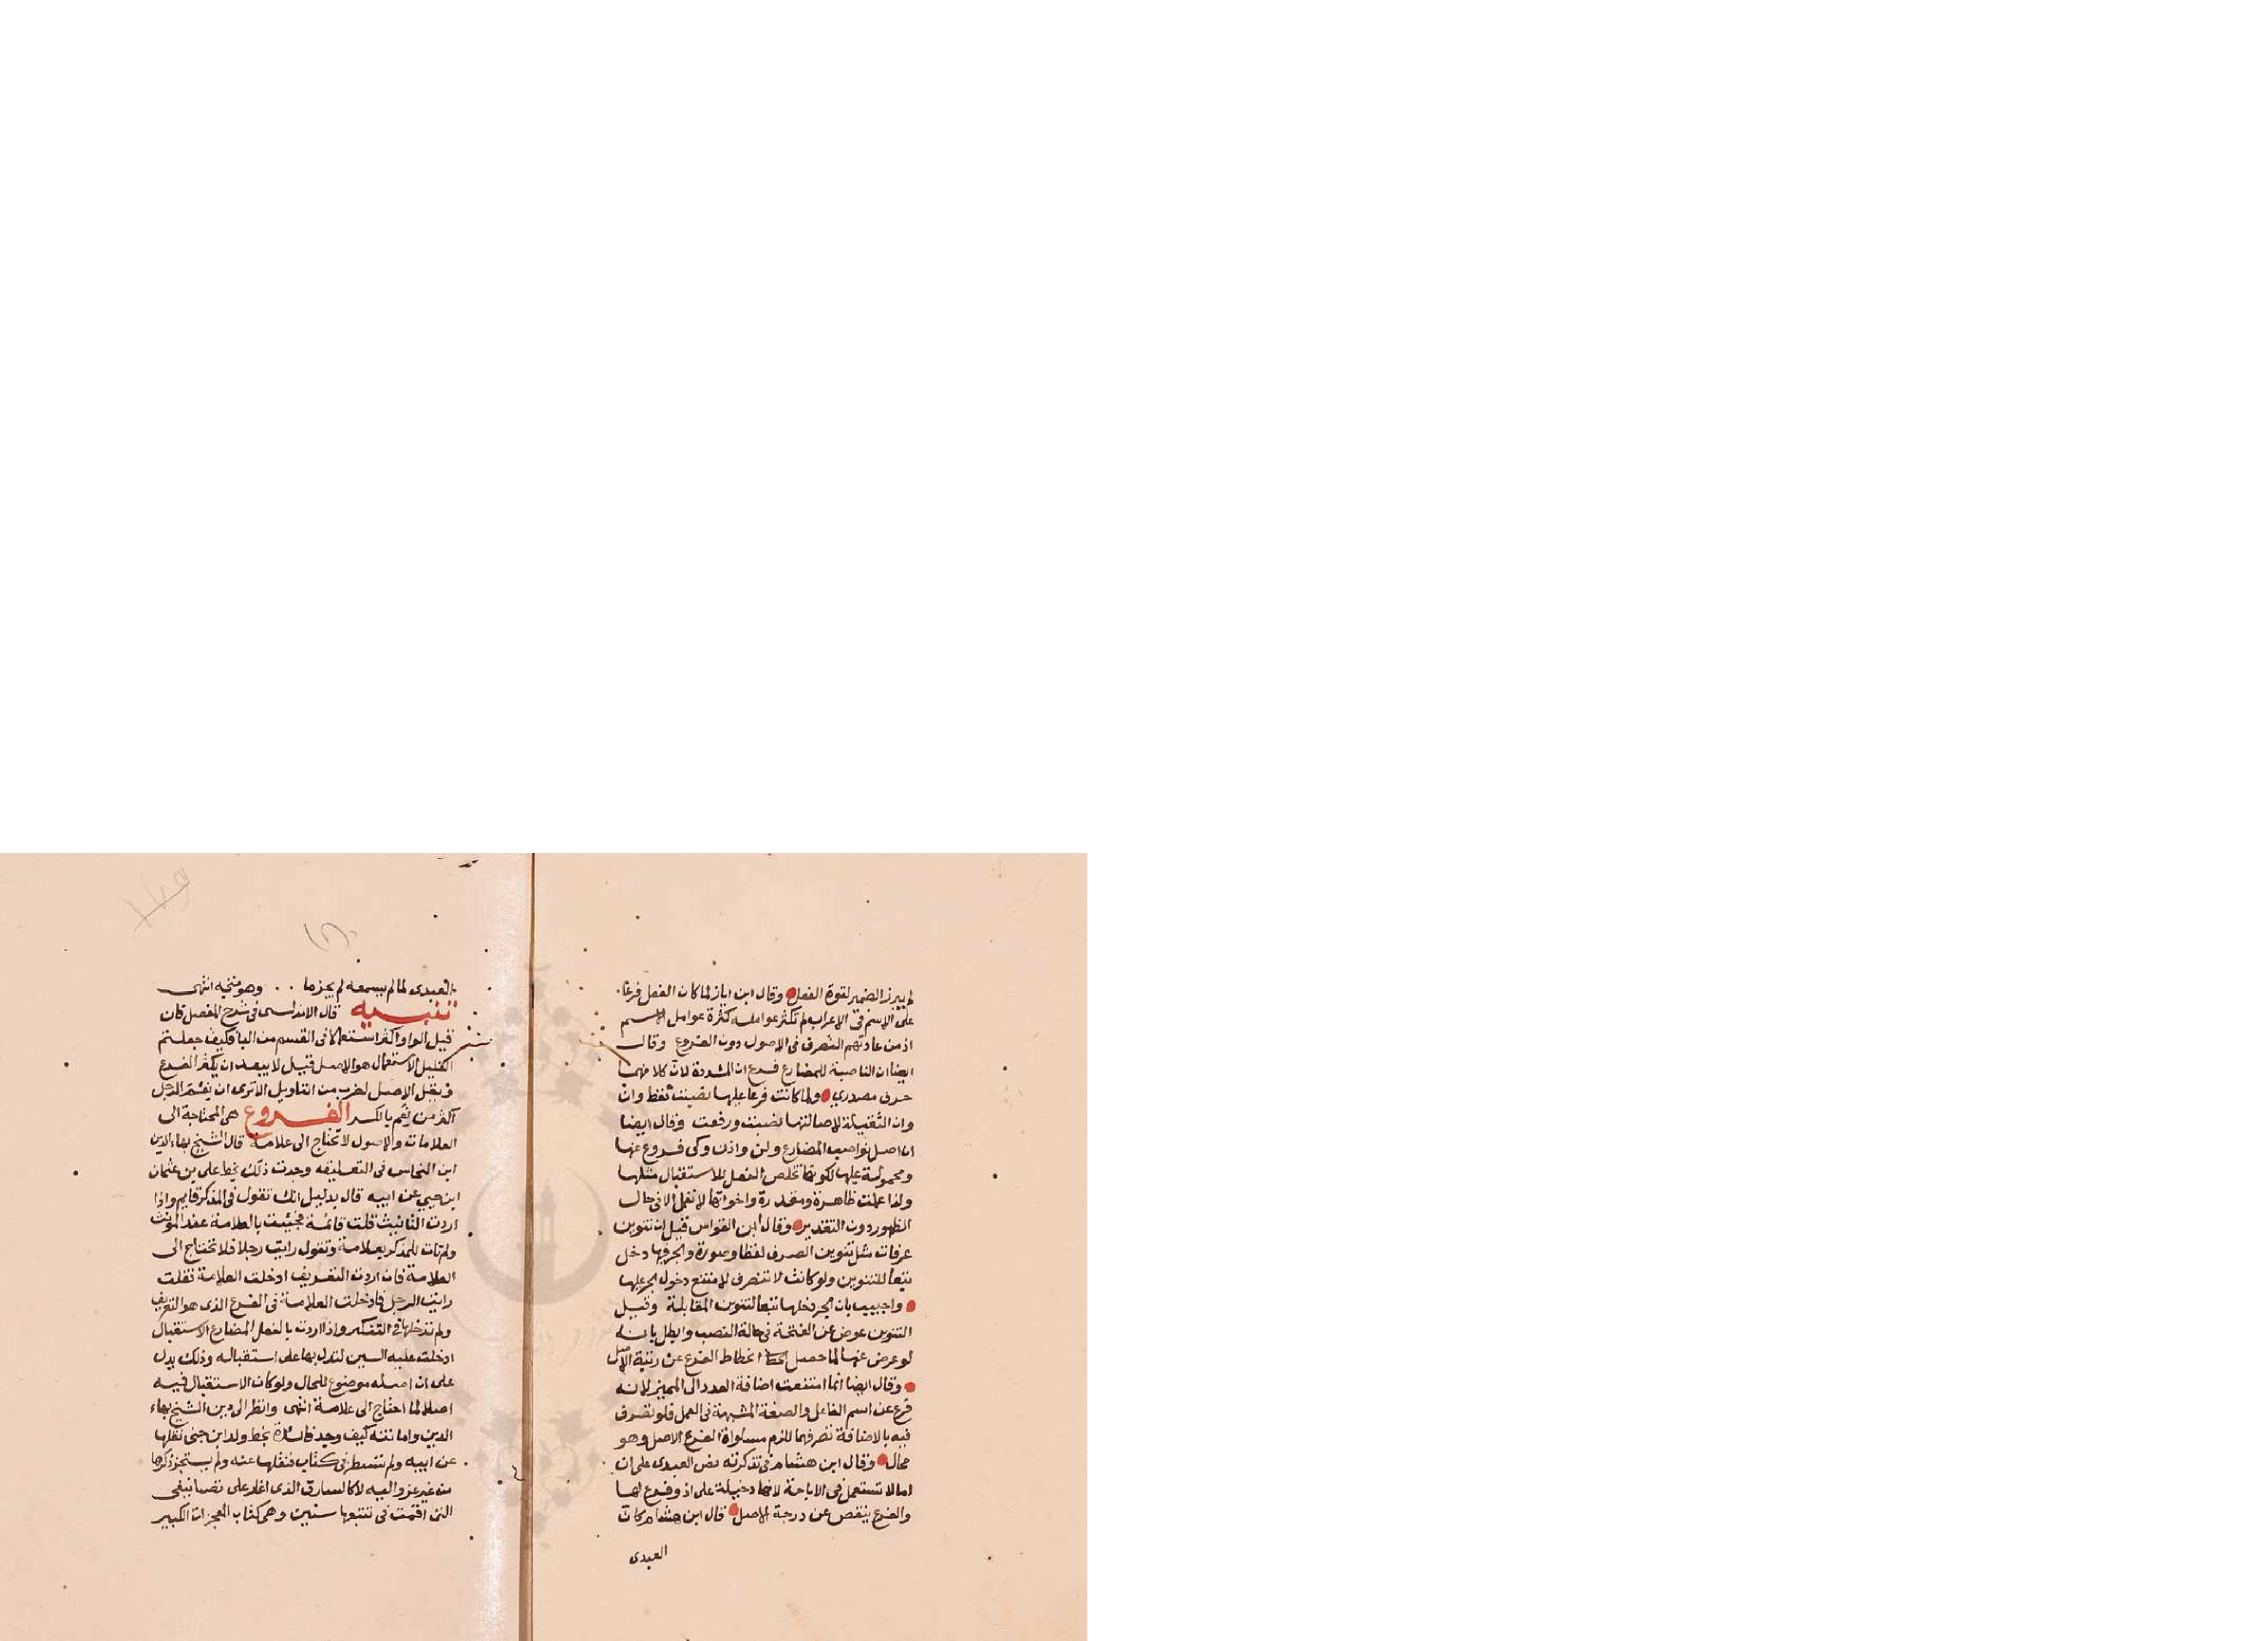 لم يبرز الضمير لقوة الفعل وقال ابن اياز لما كان الفعل فرعا
على الاسم في الاعراب لم تكثر عوامله كثرة عوامل الاسم
اذ من عادتهم التصرف في الاصول دون الفروع وقال
ايضا ان الناصبة للمضارع فرع ان المشددة لان كلا منهما
حرف مصدري ولما كانت فرعا عليها نصبت فقط وان
وان الثقيلة لاصالتها نصبت ورفعت وقال ايضا
ان اصل نواصب المضارع ولن واذن وكى فروع عنها
ومحمولة عليها لكونها تخلص الفعل للاستقبال مثلها
ولذا عملت ظاهرة ومقدرة واخواتها لا تعمل الا في حال
الظهور دون التقدير وقال ابن القواس قيل ان تنوين
عرفات مثل تنوين الصرف لفظا وصورة والجر فيها دخل
تبعا للتنوين ولو كانت لا تنصرف لامتنع دخول الجر عليها
واجيب بان الجر دخلها تبعا لتنوين المقابلة وقيل
التنوين عوض عن الفتحة في حالة النصب وابطل بانه
لو عوض عنها لما حصل انحطاط الفرع عن رتبة الاصل
وقال ايضا انما امتنعت اضافة العدد الى المميز لانه
فرع عن اسم الفاعل والصفة المشبهة في العمل فلو تصرف
فيه بالاضافة تصرفهما للزم مساواة الفرع الاصل وهو
محال وقال ابن هشام في تذكرته نص العبدى على ان
اما لا تستعمل في الاباحة لانها دخيلة على او وفرع لها
والفرع ينقص عن درجة الاصل قال ابن هشام كان
العبدى
العبدى لما لم يسمعه لم يجزها وهو متجه انتهى
تنبيه قال الاندلسى في شرح المفصل فان
قيل الواو اكثر استعمالا في القسم من الباء فكيف جعلتم
القليل الاستعمال هو الاصل قيل لا يبعد ان يكثر الفرع
ويقل الاصل لضرب من التاويل الا ترى ان نعم الرجل
اكثر من نعم بالكسر الفروع هي المحتاجة الى
العلامات والاصول لا تحتاج الى علامة قال الشيخ بهاء الدين
ابن النحاس في التعليقه وجدت ذلك بخط على بن عثمان
ابن جني عن ابيه قال بدليل انك تقول في المذكر قايم واذا
اردت التانيث قلت قائمة فجئت بالعلامة عند المونث
ولم تات للمذكر بعلامة وتقول رايت رجلا فلا تحتاج الى
العلامة فان اردت التعريف ادخلت العلامة فقلت
رايت الرجل فادخلت العلامة في الفرع الذى هو التعريف
ولم تدخلها في التنكير واذا اردت بالفعل المضارع الاستقبال
ادخلت عليه السين لتدل بها على استقباله وذلك يدل
على ان اصله موضوع للحال ولو كان الاستقبال فيه
اصلا لما احتاج الى علامة انتهى وانظر الى دين الشيخ بهاء
الدين وامانته كيف وجد فائدة بخط ولد ابن جنى نقلها
عن ابيه ولم تسطر في كتاب فنقلها عنه ولم يستجز ذكرها
من غير عزو اليه لا كالسارق الذى اغار على تصانيفي
التي اقمت في تتبعها سنين وهي كتاب المعجزات الكبير